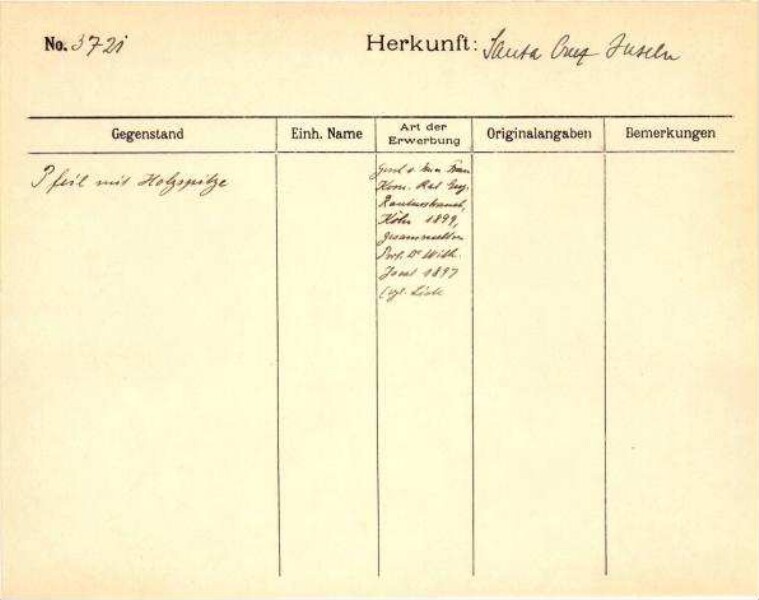 No. 3721 Herkunft: Santa Cruz Inseln
Gegenstand Einh. Name Art der Erwerbung Originalangaben Bemerkungen
Pfeil mit Holzspitze
Gesch. v. Frau
Kom. Rat Eug.
Rautenstrauch,
Köln 1899,
gesammelt von
Prof. Dr Wilh.
Joest 1897
(vgl. Liste